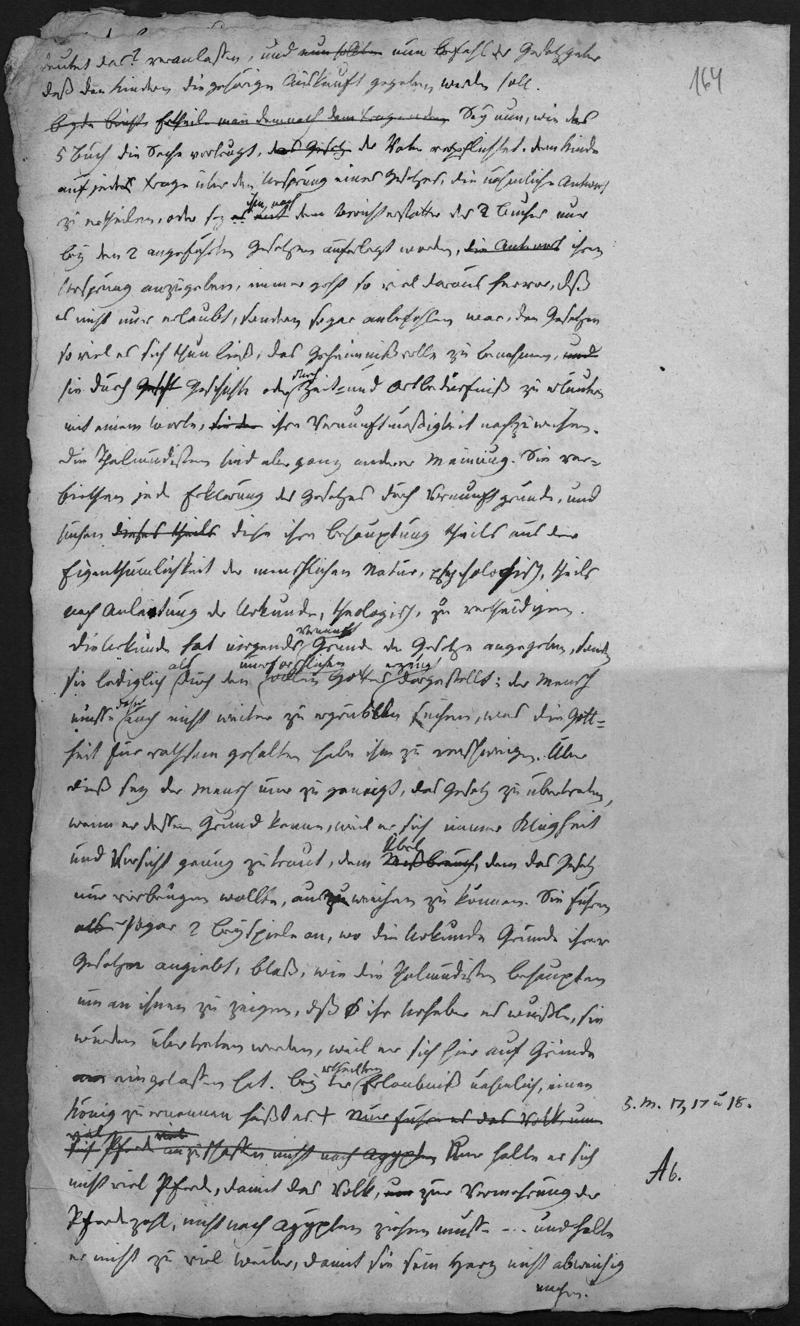 deutet das? veranlassen, und nun sollten nun befahl der Gesetzgeber
164
daß den Kindern die gehörige Auskunft gegeben werden soll.
Sey nun, wie das
5 Buch die Sache vorträgt, das Gesetz der Vater verpflichtet, dem Kinde
auf jede Frage über den Ursprung eines Gesetzes, die nähmliche Antwort
zu ertheilen, oder sey es nach dem Berichterstatter des 2 Buches nur
bey den 2 angeführten Gesetzen auferlegt worden, die Antwort ihren
Ursprung anzugeben, immer geht so viel daraus hervor, daß
es nicht nur erlaubt, sondern sogar anbefohlen war, den Gesetzen
so viel es sich thun ließ, das Geheimnißvolle zu benehmen, und
sie durch Geschichte oder durch Zeit- und Ortbedürfniß zu erläutern
mit einem Worte, ihre Vernunftmäßigkeit nachzuweisen.
Die Thalmudisten sind aber ganz anderer Meinung. Sie ver-
biethen jede Erklärung des Gesetzes durch Vernunftgründe, und
suchen dieses theils diese ihre Behauptung theils aus der
Eigenthümlichkeit der menschlichen Natur, psychologisch, theils
nach Anleitung der Urkunde, theologisch, zu vertheidigen.
Die Urkunde hat nirgends Vernunft Gründe der Gesetze angegeben, sondern
sie lediglich als durch den unerforschlichen Willen Gottes erzeugt dargestellt; der Mensch
müsse daher auch nicht weiter zu ergrübeln suchen, was die Gott-
heit für rathsam gehalten habe ihm zu verschweigen. Über
dieß sey der Mensch nur zu geneigt, das Gesetz zu übertreten,
wenn er dessen Grund kenne, weil er sich immer Klugheit
und Vorsicht genug zutraut, dem Übel Mißbrauch, dem das Gesetz
nur vorbeugen wollte, ausweichen zu können. Sie führen
sogar 2 Beyspiele an, wo die Urkunde Gründe ihrer
Gesetze angiebt, bloß, wie die Talmudisten behaupten
um an ihnen zu zeigen, daß ihr Urheber es wußte, sie
würden übertreten werden, weil er sich hier auf Gründe
eingelassen hat. Bey der ertheilten Erlaubniß nehmlich, einen
König zu ernennen heißt es + Nur führe er das Volk um
5. M. 17, 17 u 18.
viel Pferde anzuschaffen nicht nach Ägypten Nur halte er sich
Ab.
nicht viel Pferde, damit das Volk, um zur Vermehrung der
Pferdezahl, nicht nach Ägypten ziehen müsse --- und halte
er nicht zu viel Weiber, damit sie sein Herz nicht abwendig
machen.